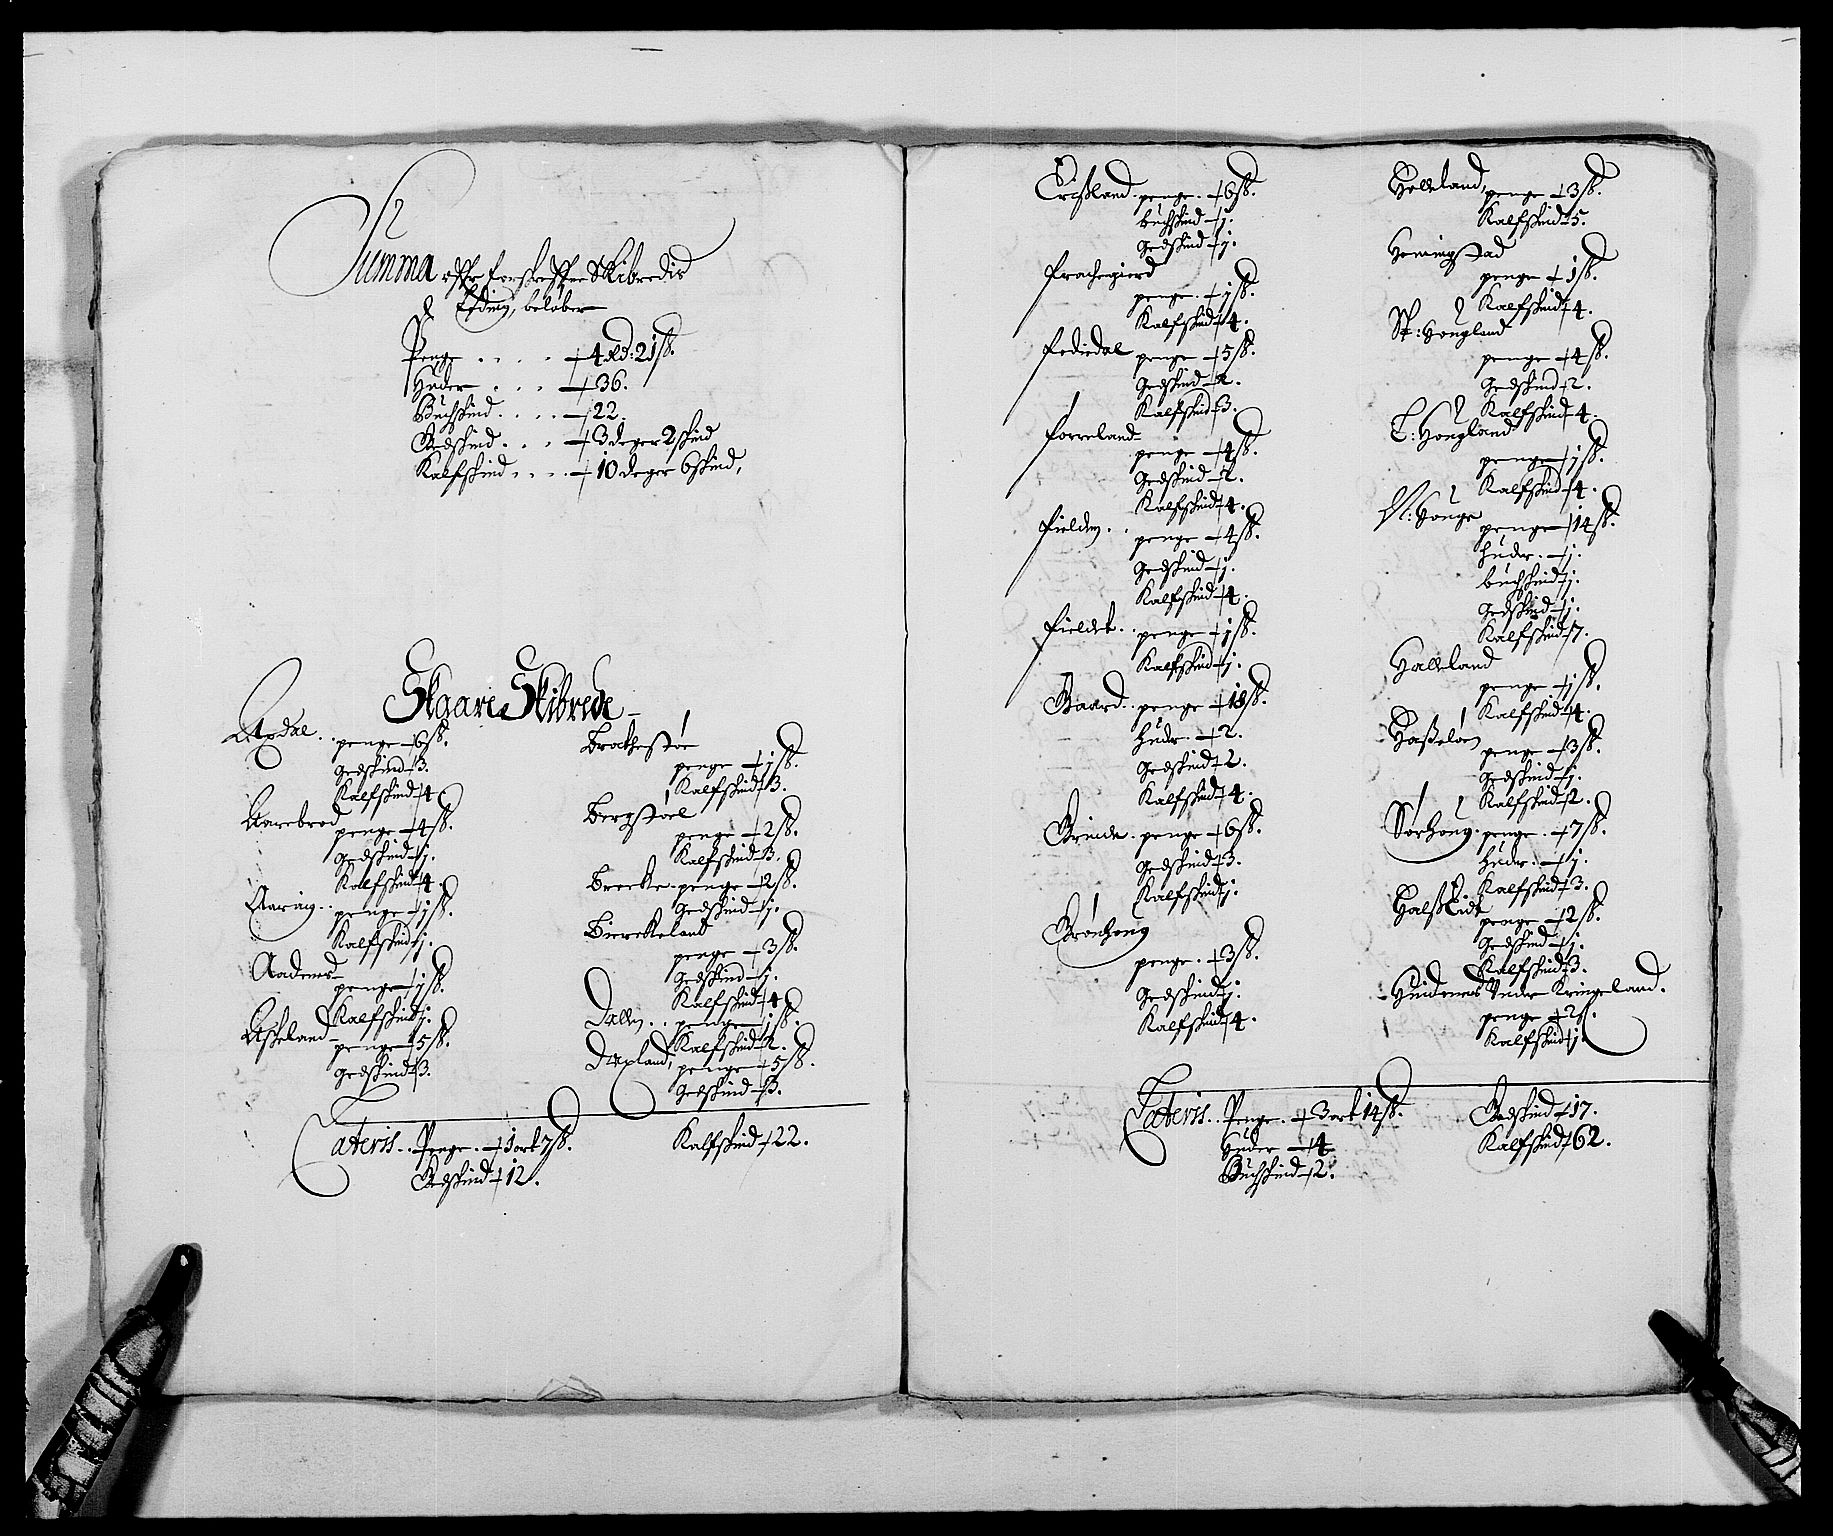 Summa offr forskreffne Skibredis
tiding, beløber
Penge . . . . 4 Rd: 21 ß.
Huder . . . 36.
Buchskind . . . . 22.
Gedskind . . . 3 deger 2 skind
Kalfskind . . . . 10 deger 6 skind,
Skaare Skibrede
Axdal . . penge 6 ß.
gedskind 3.
Kalfskind 4.
Aarebrod
penge 4 ß.
gedskind j.
Kalfskind 4.
Aaring . . penge j ß.
Kalfskind j.
Aadennes
penge j ß.
Kalfskind j.
Askeland
penge 5 ß.
gedskind 3.
Brathestøe
penge j ß.
Kalfskind 3.
Bergstøel
penge 2 ß.
Kalfskind 3.
Brecke . penge 2 ß.
gedskind j.
Bierckeland
penge 3 ß.
gedskind j.
Kalfskind 4.
Dallen . . penge j ß.
Kalfskind 2.
Duxland, penge 5 ß.
gedskind 3.
Lateris . . Penge . 1 ort 7 ß.
Gedskind 12.
Kalfskind 22.
Erixland . penge . 6 ß.
buchskind j.
gedskind j.
Frachegierd
penge . j ß.
Kalfskind 4.
Fediedal penge 5 ß.
gedskind 2.
Kalfskind 3.
Forreland
penge 4 ß.
gedskind 2.
Kalfskind 4.
Fielden . . penge 4 ß.
gedskind j.
Kalfskind 4.
Fieldet . . penge j ß.
Kalfskind j.
Gaard . penge 18 ß.
huder . 2.
gedskind 2.
Kalfskind 4.
Grinde . penge 6 ß.
gedskind 3.
Kalfskind j.
Grønhoug
penge . 3 ß.
gedskind j.
Kalfskind 4.
Helleland, penge 3 ß.
Kalfskind 5.
Hemingstad
penge 1 ß.
Kalfskind 4.
St: Hougland
penge 4 ß.
gedskind 2.
Kalfskind 4.
L: Hougland
penge j ß.
Kalfskind 4.
N: Houge penge 14 ß.
huder . j.
buchskind j.
gedskind j.
Kalfskind 7.
Halleland
penge j ß.
Kalfskind 4.
Hasseløen penge 3 ß.
gedskind j.
Kalfskind 2.
Sørhoug . penge . 7 ß.
huder . j.
Kalfskind 3.
Halseidt
penge 2 ß.
gedskind j.
Kalfskind 3.
Heidenes Under Kringeland .
penge 2 ß.
Kalfskind j.
Lateris . . Penge . 3 ort 14 ß.
Huder 4
Buchskind 2.
Gedskind 17.
Kalfskind 62.